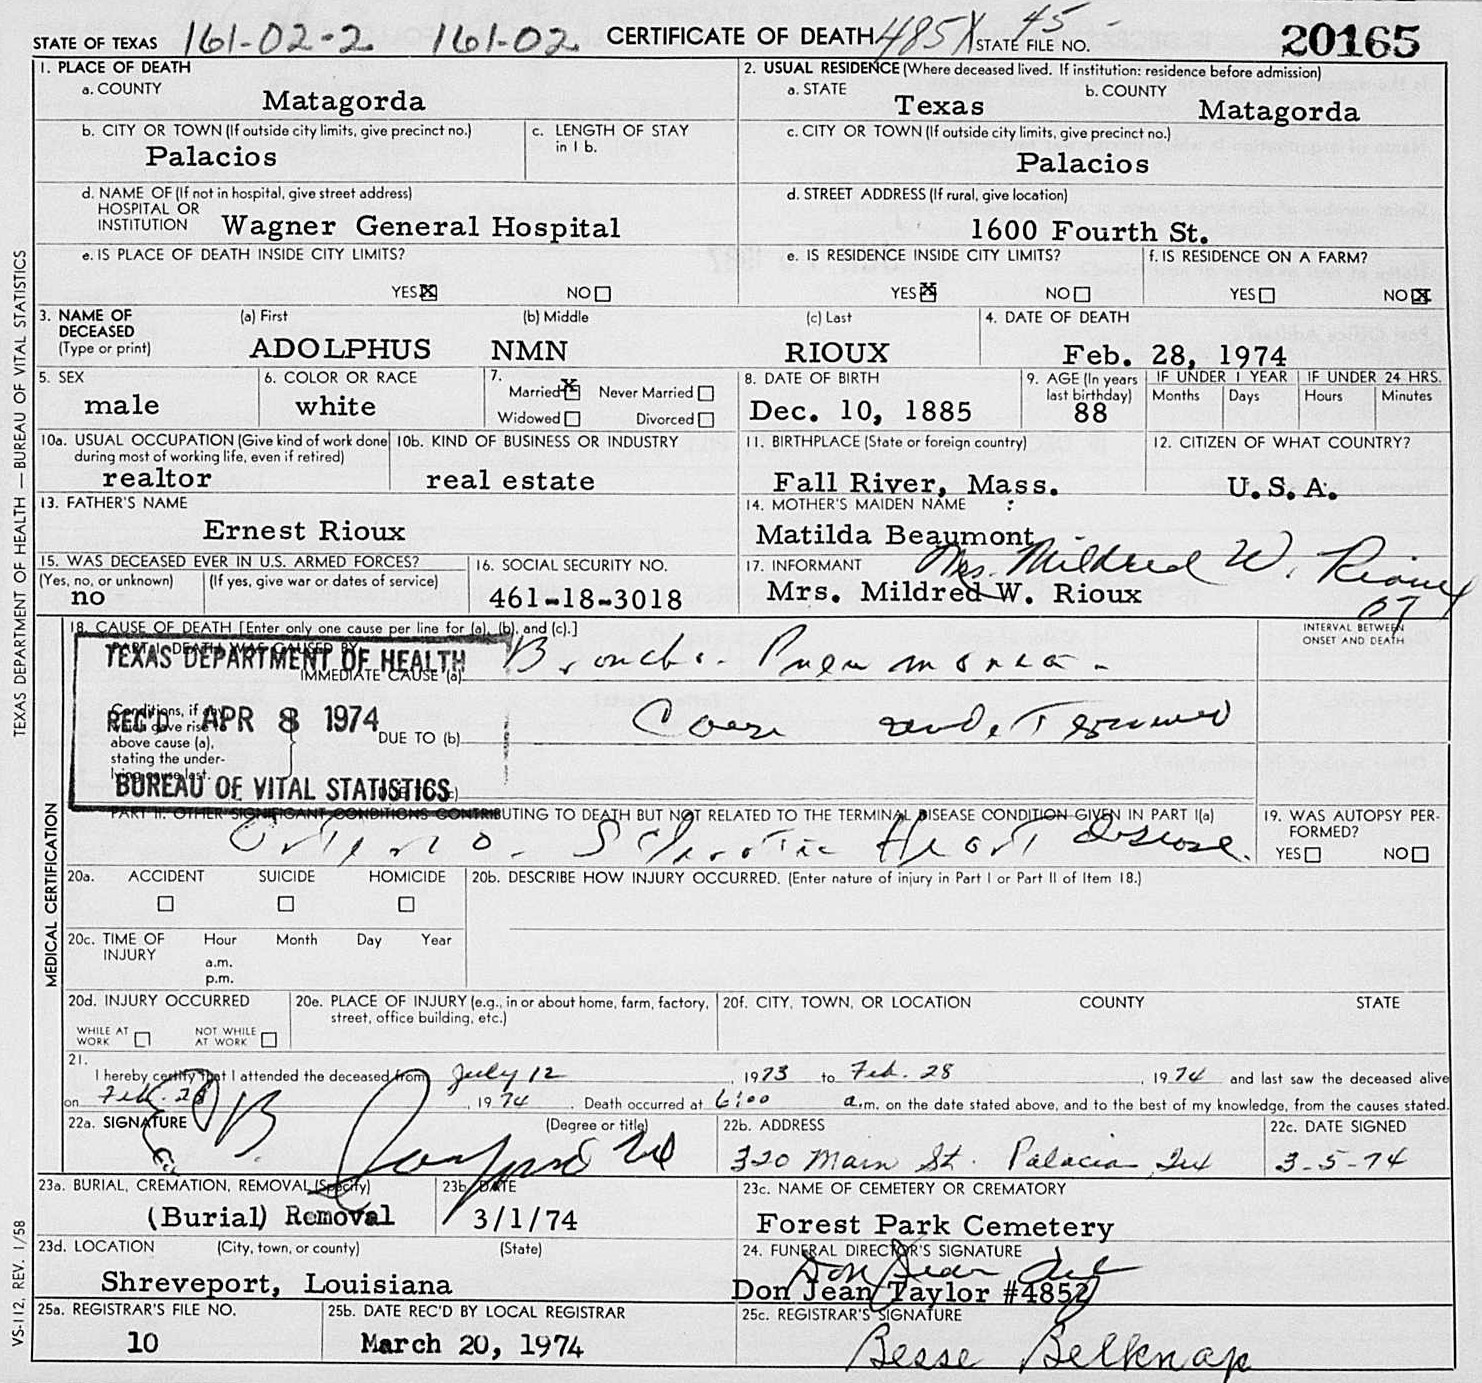 STATE OF TEXAS 161-02-2 161-02 CERTIFICATE OF DEATH 485X 45 STATE FILE NO. 20165
1. PLACE OF DEATH
a. COUNTY
Matagorda
2. USUAL RESIDENCE (Where deceased lived. If institution: residence before admission)
a. STATE
Texas
b. COUNTY
Matagorda
b. CITY OR TOWN (If outside city limits, give precinct no.)
Palacios
c. LENGTH OF STAY
in 1 b.
c. CITY OR TOWN (If outside city limits, give precinct no.)
Palacios
d. NAME OF (If not in hospital, give street address)
HOSPITAL OR
INSTITUTION Wagner General Hospital
d. STREET ADDRESS (If rural, give location)
1600 Fourth St.
e. IS PLACE OF DEATH INSIDE CITY LIMITS?
YES NO
e. IS RESIDENCE INSIDE CITY LIMITS?
YES NO
f. IS RESIDENCE ON A FARM?
YES NO
3. NAME OF
DECEASED
(Type or print)
(a) First
ADOLPHUS
(b) Middle
NMN
(c) Last
RIOUX
4. DATE OF DEATH
Feb. 28, 1974
5. SEX
male
6. COLOR OR RACE
white
7.
Married Never Married
Widowed Divorced
8. DATE OF BIRTH
Dec. 10, 1885
9. AGE (In years
last birthday)
88
IF UNDER 1 YEAR
Months Days
IF UNDER 24 HRS.
Hours Minutes
10a. USUAL OCCUPATION (Give kind of work done
during most of working life, even if retired)
realtor
10b. KIND OF BUSINESS OR INDUSTRY
real estate
11. BIRTHPLACE (State or foreign country)
Fall River, Mass.
12. CITIZEN OF WHAT COUNTRY?
U.S.A.
13. FATHER'S NAME
Ernest Rioux
14. MOTHER'S MAIDEN NAME :
Matilda Beaumont
15. WAS DECEASED EVER IN U.S. ARMED FORCES?
(Yes, no, or unknown) (If yes, give war or dates of service)
no
16. SOCIAL SECURITY NO.
461-18-3018
17. INFORMANT Mrs. Mildred W. Rioux
Mrs. Mildred W. Rioux
07
18. CAUSE OF DEATH [Enter only one cause per line for (a), (b), and (c).]
INTERVAL BETWEEN
ONSET AND DEATH
PART I. DEATH WAS CAUSED BY
TEXAS DEPARTMENT OF HEALTH
IMMEDIATE CAUSE (a) Broncho-Pneumonia-
REC'D APR 8 1974
BUREAU OF VITAL STATISTICS
Conditions, if any
which gave rise to
above cause (a),
stating the under-
lying cause last.
DUE TO (b)
DUE TO (c)
PART II. OTHER SIGNIFICANT CONDITIONS CONTRIBUTING TO DEATH BUT NOT RELATED TO THE TERMINAL DISEASE CONDITION GIVEN IN PART I(a)
Arterio-Sclerotic Heart disease.
19. WAS AUTOPSY PER-
FORMED?
YES NO
20a. ACCIDENT SUICIDE HOMICIDE
20b. DESCRIBE HOW INJURY OCCURRED. (Enter nature of injury in Part I or Part II of Item 18.)
20c. TIME OF
INJURY
Hour Month Day Year
a.m.
p.m.
20d. INJURY OCCURRED
WHILE AT
WORK
NOT WHILE
AT WORK
20e. PLACE OF INJURY (e.g., in or about home, farm, factory,
street, office building, etc.)
20f. CITY, TOWN, OR LOCATION COUNTY STATE
21.
I hereby certify that I attended the deceased from July 12, 1973 to Feb. 28, 1974 and last saw the deceased alive
on Feb. 28, 1974. Death occurred at 6:00 a.m. on the date stated above, and to the best of my knowledge, from the causes stated.
22a. SIGNATURE (Degree or title)
22b. ADDRESS
320 Main St. Palacios, Tex
22c. DATE SIGNED
3-5-74
23a. BURIAL, CREMATION, REMOVAL (Specify)
(Burial) Removal
23b. DATE
3/1/74
23c. NAME OF CEMETERY OR CREMATORY
Forest Park Cemetery
23d. LOCATION (City, town, or county) (State)
Shreveport, Louisiana
24. FUNERAL DIRECTOR'S SIGNATURE
Don Jean Taylor #4852
25a. REGISTRAR'S FILE NO.
10
25b. DATE REC'D BY LOCAL REGISTRAR
March 20, 1974
25c. REGISTRAR'S SIGNATURE
Besse Belknap
TEXAS DEPARTMENT OF HEALTH — BUREAU OF VITAL STATISTICS
MEDICAL CERTIFICATION
VS-112, REV. 1/58